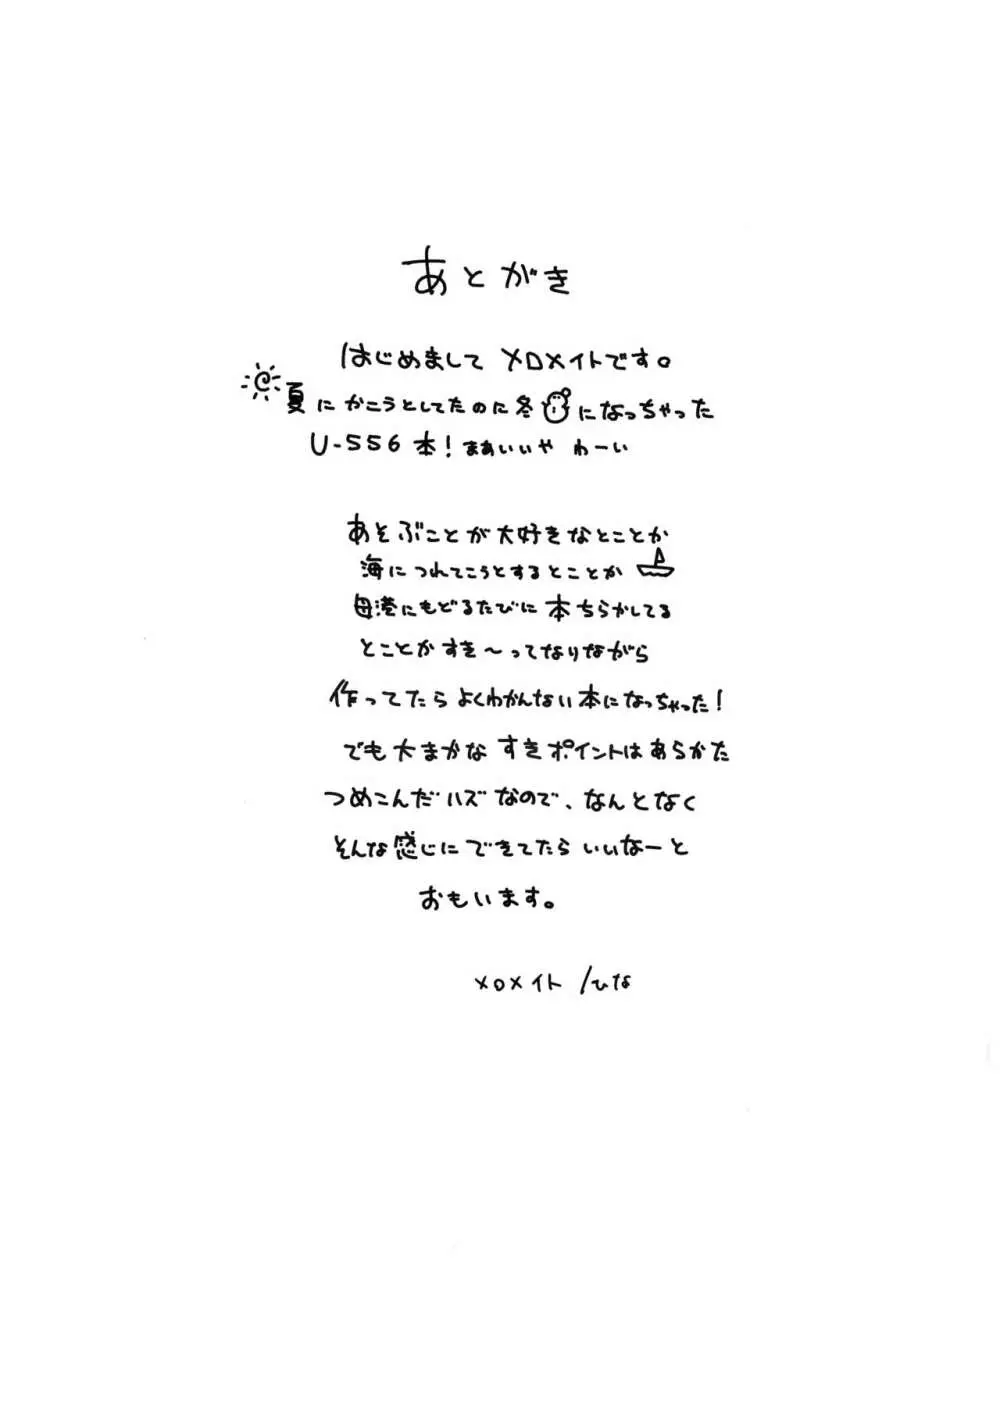 あとがき
はじめまして メロメイトです。
夏にかこうとしてたのに冬になっちゃった
U-556 本！まあいいや わーい
あそぶことが大好きなとことか
海につれてこうとするとことか
母港にもどるたびに本ちらかしてる
とことかすき〜ってなりながら
作ってたらよくわかんない本になっちゃった！
でも大まかなすきポイントはあらかた
つめこんだハズなので、なんとなく
そんな感じにできてたらいいなーと
おもいます。
メロメイト /ひな